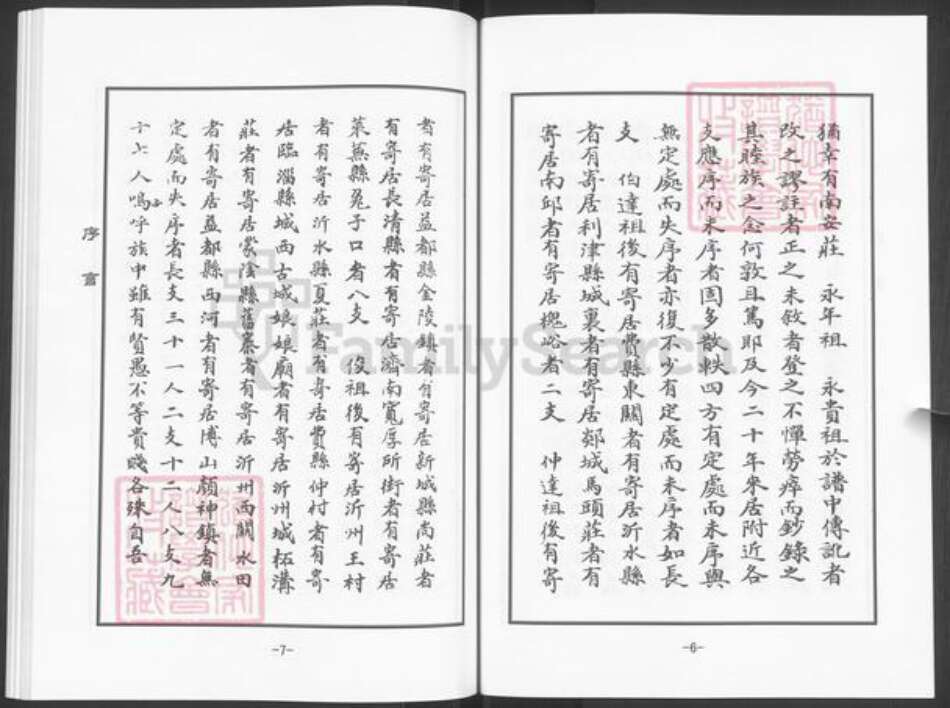 猶幸有南安莊　永年祖　永貴祖於譜中傳訛者
改之謬註者正之未敘者登之不憚勞瘁而鈔錄之
其睦族之念何敦且篤耶及今二十年來居附近各
支應序而未序者固多散軼四方有定處而未序與
無定處而失序者亦復不少有定處而未序者如長
支　伯達祖後有寄居費縣東關者有寄居沂水縣
者有寄居利津縣城裏者有寄居郯城馬頭莊者有
寄居南邱者有寄居槐峪者二支　仲達祖後有寄
-6-
者有寄居益都縣金陵鎮者有寄居新城縣尚莊者
有寄居長清縣者有寄居濟南寬厚所街者有寄居
萊蕪縣兔子口者八支　俊祖後有寄居沂州王村
者有寄居沂水縣夏莊者有寄居費縣仲村者有寄
居臨淄縣城西古城娘娘廟者有寄居沂州城柘溝
莊者有寄居蒙陰縣舊寨者有寄居沂州西關水田
者有寄居益都縣西河者有寄居博山顏神鎮者無
定處而失序者長支三十一人二支十二人八支九
十七人嗚呼族中雖有賢愚不等貴賤各殊自吾
序言
-7-
FamilySearch